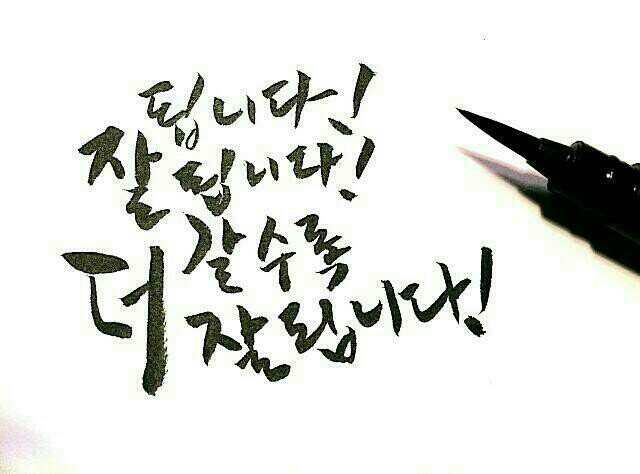 됩니다!
잘 됩니다!
갈수록
더 잘 됩니다!